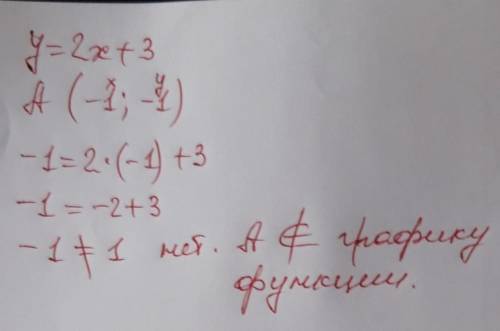 y = 2x + 3
x y
A (-1; -1)
-1 = 2 · (-1) + 3
-1 = -2 + 3
-1 ≠ 1 нет. A ⊄ графику
функции.